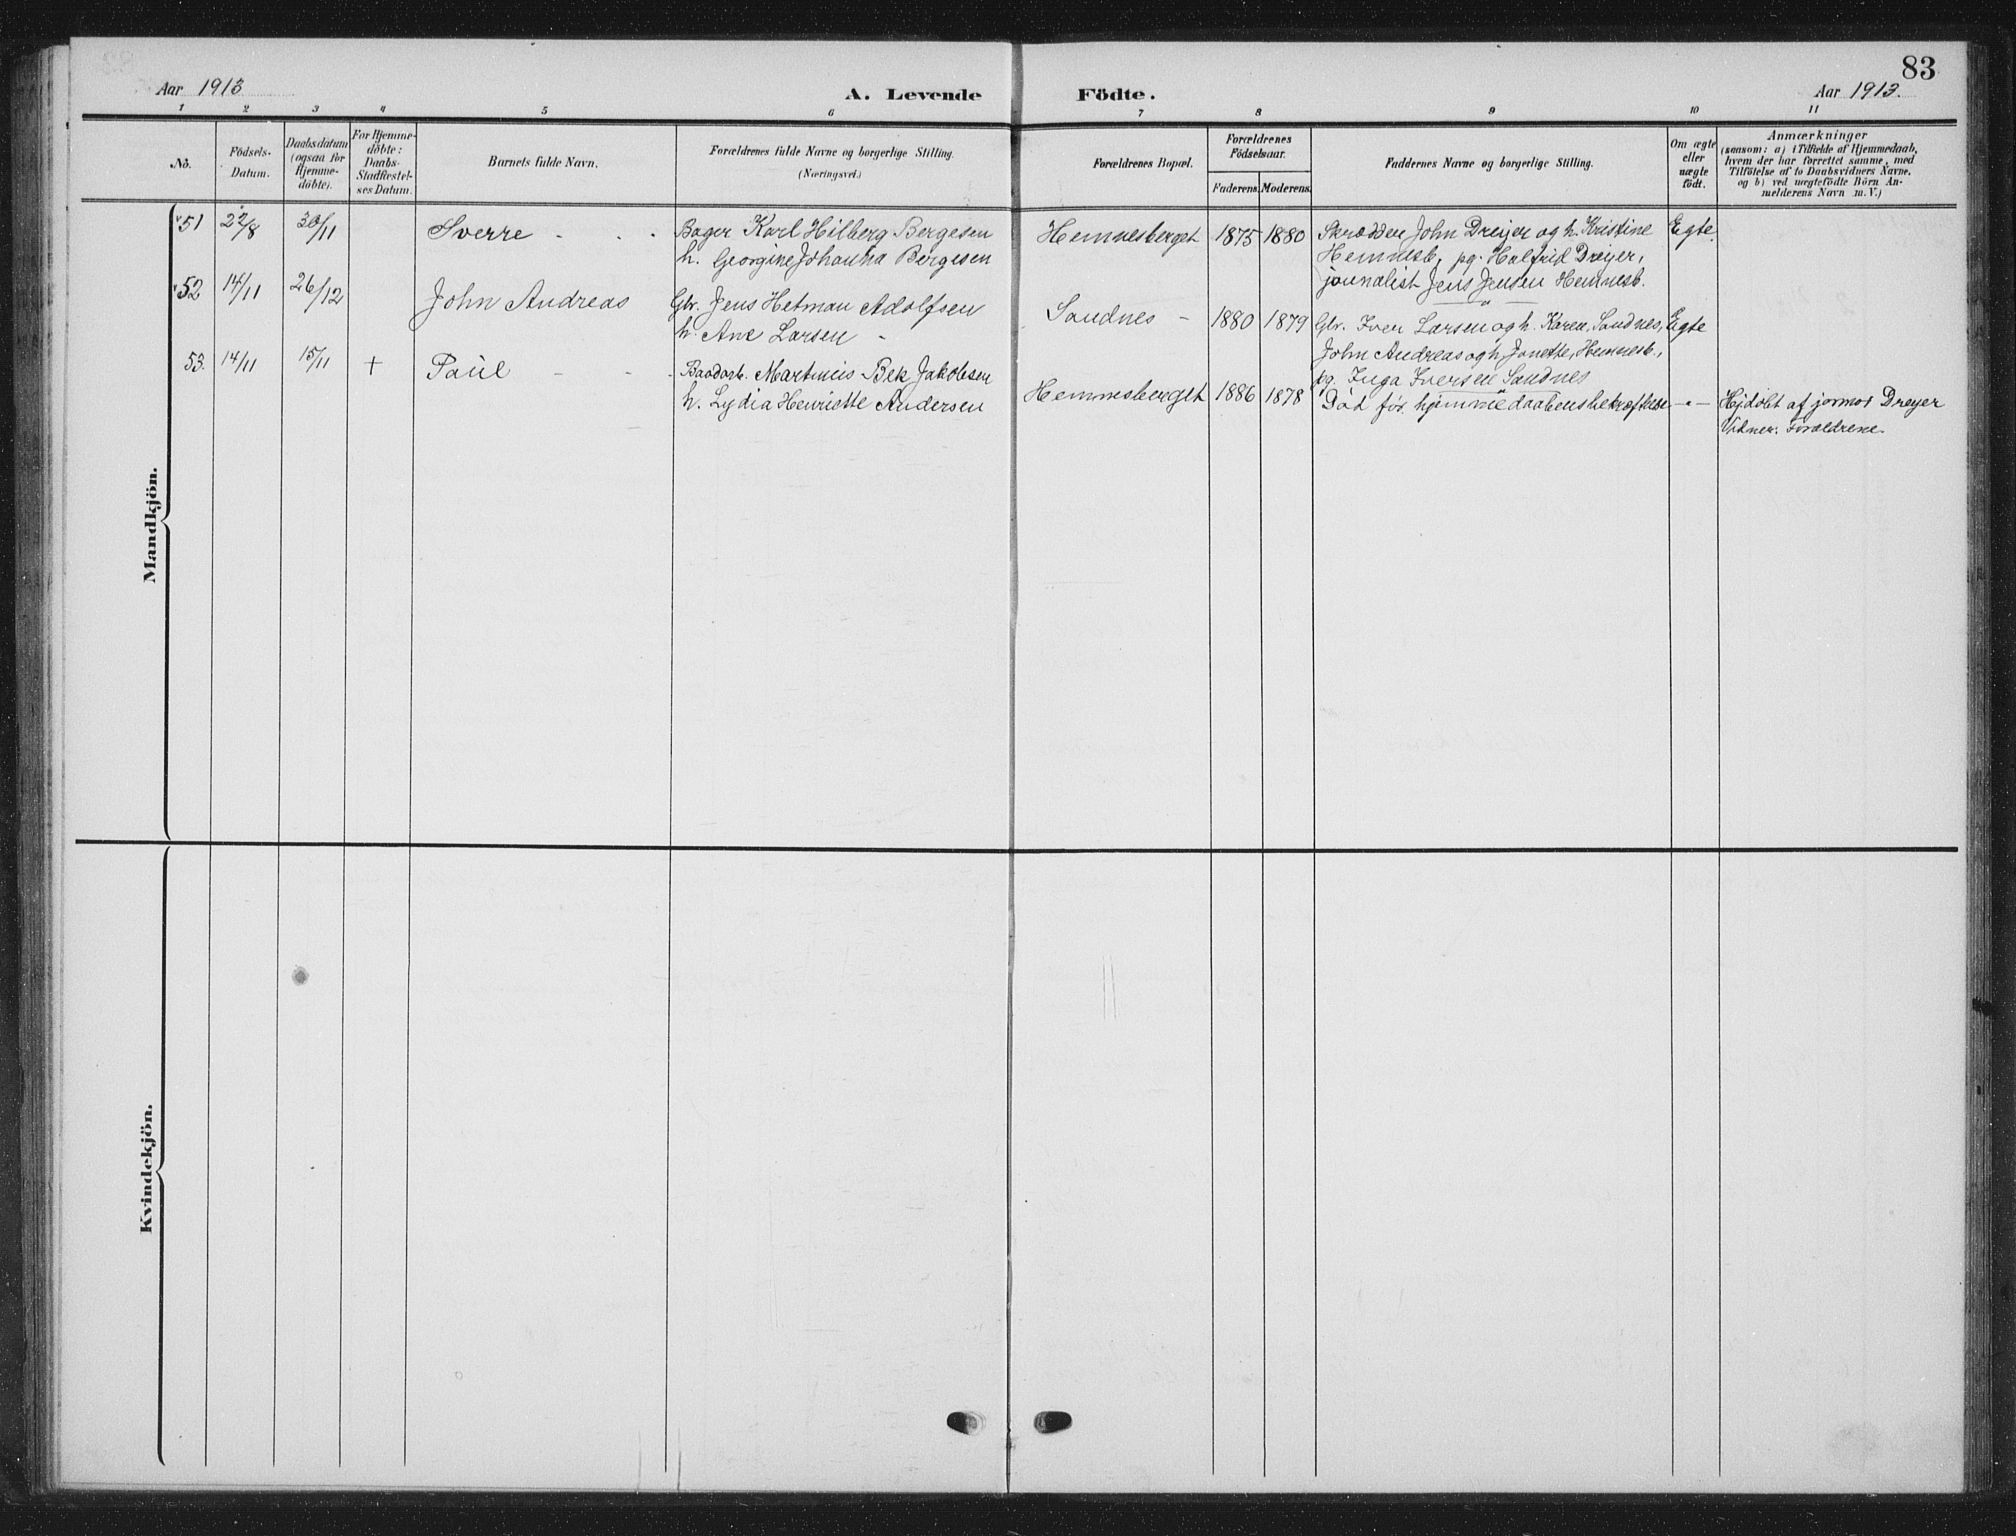 83
Aar 1913
A. Levende
Födte.
Aar 1913.
1 2 3 4 5 6 7 8 9 10 11
No.
Födsels-
Datum.
Daabsdatum
(ogsaa for
Hjemme-
döbte).
For Hjemme-
döbte:
Daabs-
Stadfæstel-
ses Datum.
Barnets fulde Navn.
Forældrenes fulde Navne og borgerlige Stilling.
(Næringsvei.)
Forældrenes Bopæl.
Forældrenes
Födselsaar.
Faderens. Moderens.
Faddernes Navne og borgerlige Stilling.
Om ægte
eller
uægte
födt.
Anmærkninger
(saasom: a) i Tilfælde af Hjemmedaab,
hvem der har forrettet samme, med
Tilföielse af to Daabsvidners Navne,
og b) ved uægtefödte Börn An-
melderens Navn m. V.)
Mandkjön.
51 22/8 30/11 Sverre - - - Bager Karl Hilberg Bergesen
h. Georgine Johanna Bergesen
Hemnesberget 1875 1880 Skrædder John Dreijer og h. Kristine
Hemnesb, pg. Halfrid Dreijer,
journalist Jens Jensen Hemnesb.
Egte.
52 14/11 26/12 John Andreas Gbr. Jens Hetman Adolfsen
h. Ane Larsen -
Sandnes - 1880 1879 Gbr. Iver Larsen og h. Karen, Sandnes,
John Andreas og h. Jonette, Hemnesb.,
pg. Inga Iversen Sandnes
Egte
53. 14/11 15/11 + Paul - - - Baadarb. Martinus Bek Jakobsen
h. Lydia Henriette Andersen
Hemnesberget 1886 1878 Död för hjemmedaabens bekræftelse -"- Hjdöbt af jormor Dreyer
Vidner: Forældrene.
Kvindekjön.